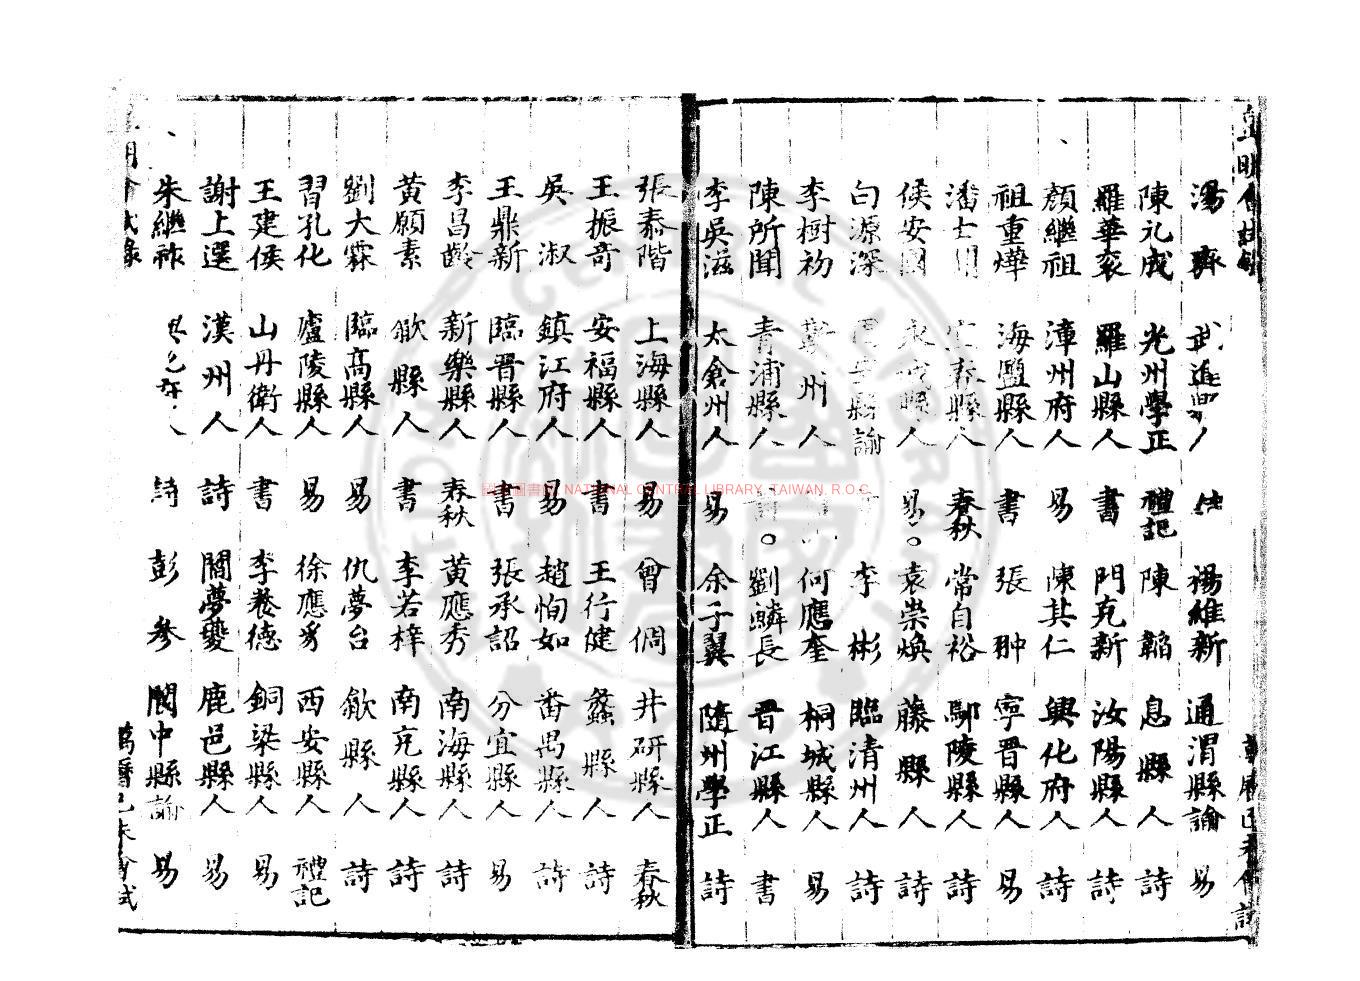 皇明會試錄
湯齊 武進 楊維新 通渭縣諭 易
陳元成 光州學正 禮記 陳韜 息縣人 詩
羅華袞 羅山縣人 書 門克新 汝陽縣人 詩
顏繼祖 漳州府人 易 陳其仁 興化府人 詩
祖重燁 海鹽縣人 書 張翀 寧晉縣人 易
潘士 縣人 春秋 常自裕 鄢陵縣人 詩
侯安國 永 縣人 易 袁崇煥 藤縣人 詩
白源深 縣諭 李彬 臨清州人 詩
李樹初 蘄州人 何應奎 桐城縣人 易
陳所聞 青浦縣人 詩 劉鱗長 晉江縣人 書
李吳滋 太倉州人 易 余子翼 隨州學正 詩
張泰階 上海縣人 易 曾倜 井研縣人 春秋
王振奇 安福縣人 書 王行健 蠡縣人 詩
吳淑 鎮江府人 易 趙恂如 番禺縣人 詩
王鼎新 臨晉縣人 書 張承詔 分宜縣人 易
李昌齡 新樂縣人 春秋 黃應秀 南海縣人 詩
黃願素 歙縣人 書 李若梓 南充縣人 詩
劉大霖 臨高縣人 易 仇夢台 歙縣人 詩
習孔化 廬陵縣人 易 徐應秀 西安縣人 禮記
王建侯 山丹衛人 書 李養德 銅梁縣人 易
謝上選 漢州人 詩 閻夢夔 鹿邑縣人 易
朱繼祚 人 詩 彭參 閬中縣諭 易
皇明會試錄
萬曆己未會試
國家圖書館 NATIONAL CENTRAL LIBRARY, TAIWAN, R.O.C.